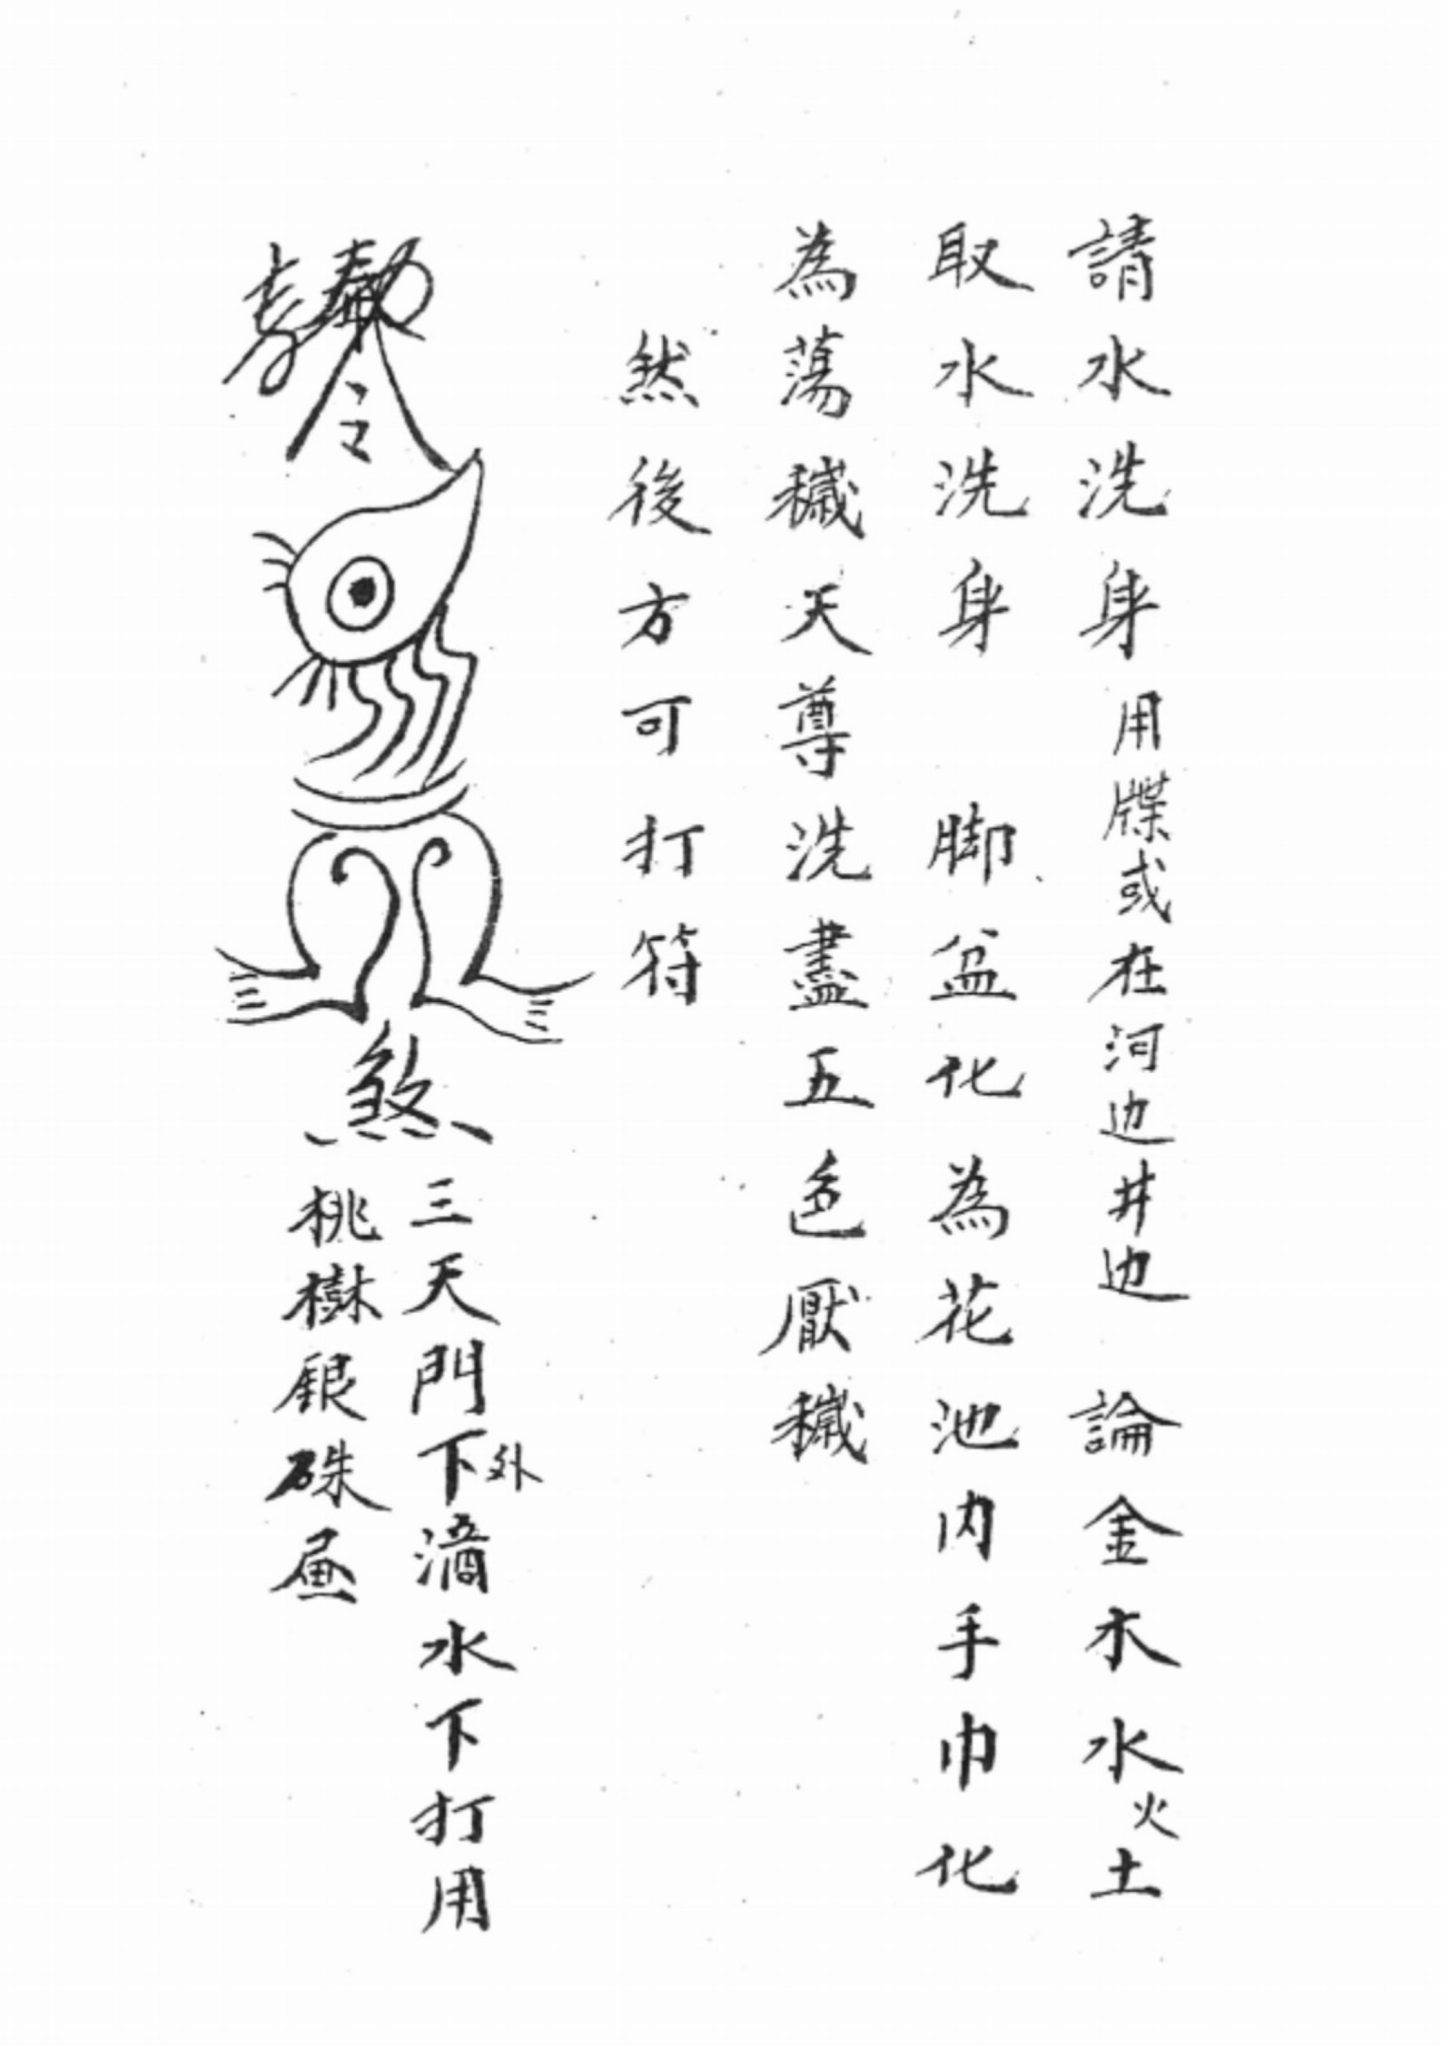 請水洗身用牒或在河边井边 論金木水火土
取水洗身 脚盆化為花池内手巾化
為蕩穢天尊洗盡五色厭穢
然後方可打符
令
煞
三天門下外滴水下打用
桃樹銀硃画